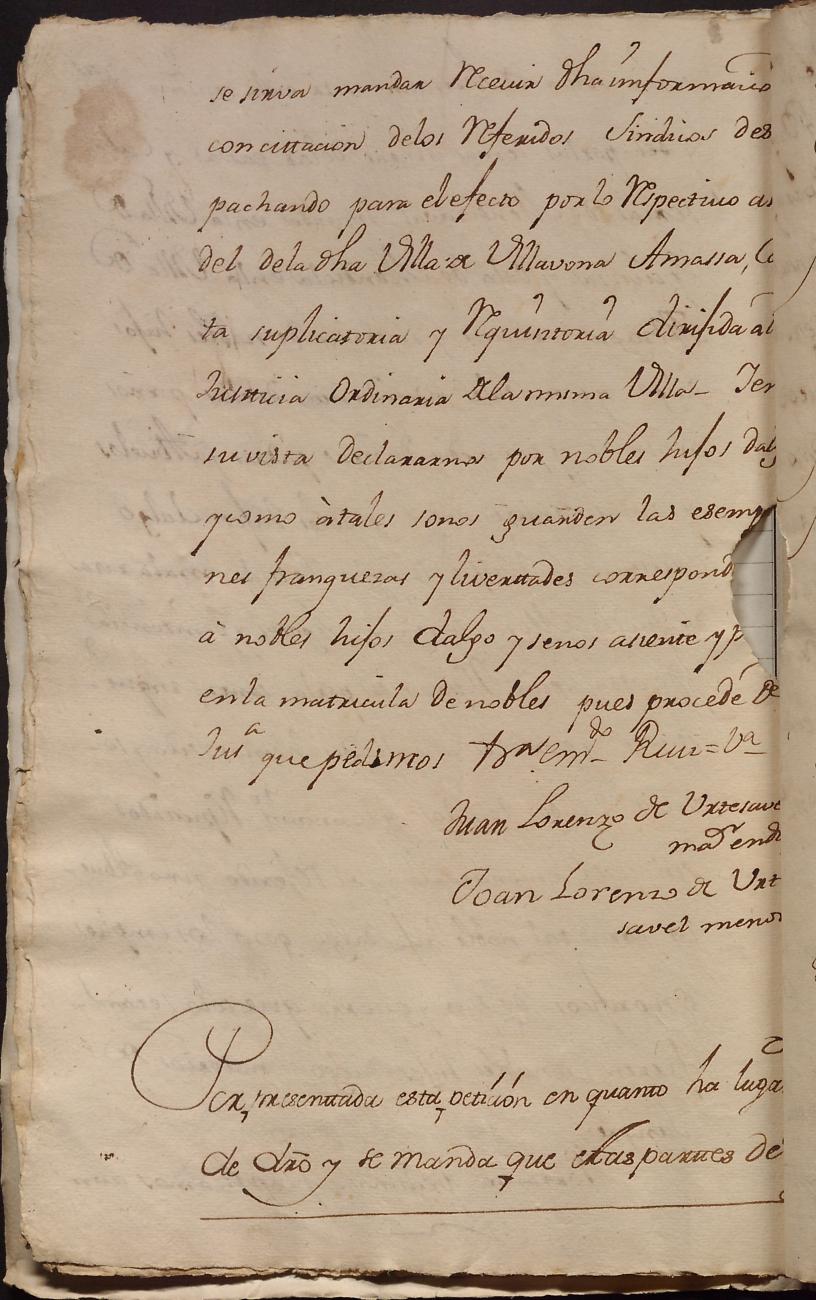 se sirva mandar Rcevir dha informacio
concittacion delos Rferidos Sindicos des
pachando para el efecto por lo Rspectivo as
del dela dha Villa de Villavona Amassa, Ca
ta suplicatoria y Rquisitoria dirijida a
Justicia Ordinaria dela misma Villa
su vista declararnos por nobles hijos dalg
y como à tales se nos guarden las esemp
nes franquezas y livertades correspond
à nobles hijos dalgo y se nos asiente y p
en la matricula de nobles pues procede de
Jusa que pedimos
Juan Lorenzo de Urtesave
Joan Lorenzo de Urt
savel menor
Por presenttada esta peticion en quanto ha luga
de dro y se manda que estas partes de